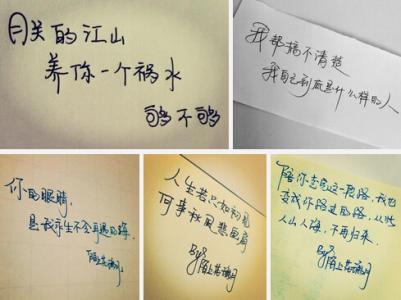 朕的江山
养你一个祸水
够不够
我都搞不清楚
我自己到底是什么样的人
你的眼睛,
是我余生不会再遇的海.
人生若只如初见
何事秋风悲画扇
By
陪你走完这一段路,我也
变成你路过的路,从此
人山人海,不再归来.
By